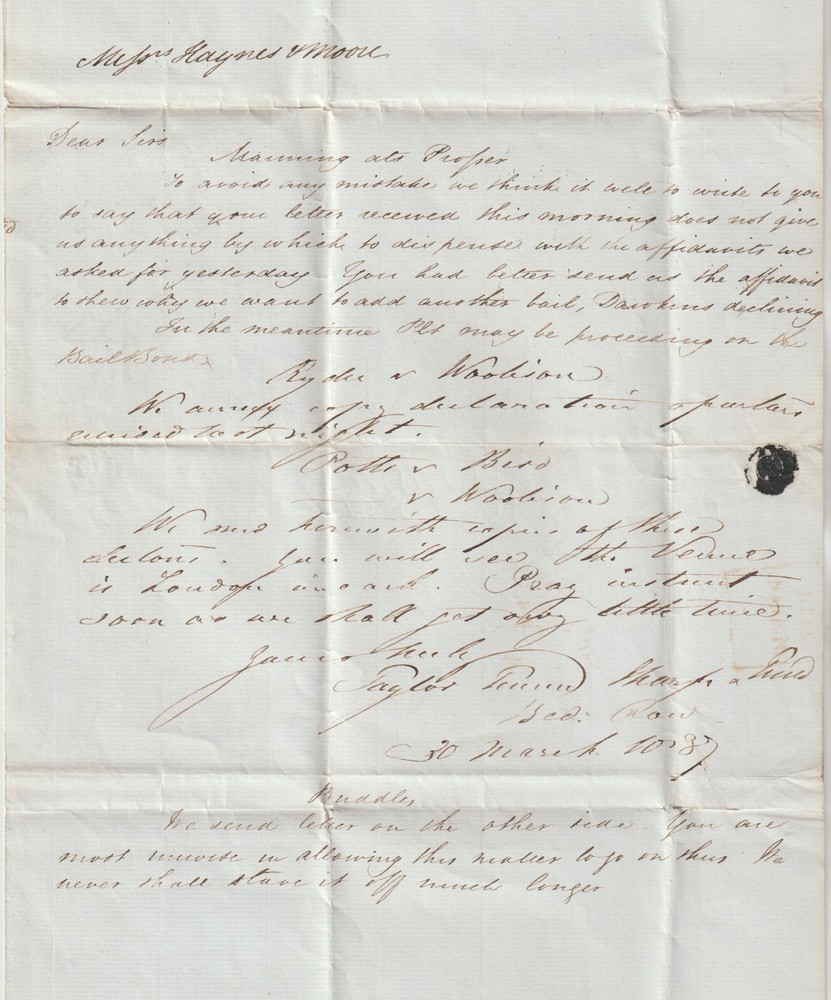 Messrs Haynes & Moore
Dear Sirs
Manning ats Prosser
To avoid any mistake we think it well to write to you
to say that your letter received this morning does not give
us any thing by which to dispense with the affidavits we
asked for yesterday You had better send us the affidavit
to shew why we want to add another bail, Dawkins declining
In the meantime Plt may be proceeding on the
Bail Bond
Ryder v Woobison
We annex copy declaration & parlars
last night.
Potts v Bird
v Woobison
We send herewith copies of these
declons. You will see the Venue
is London in each. Pray instruct
soon as we shall get very little time.
Yours truly
Taylor Sharp &
Bed: Row
30 March 1837
Buddles
We send letter on the other side. You are
most unwise in allowing this matter to go on thus We
never shall stave it off much longer